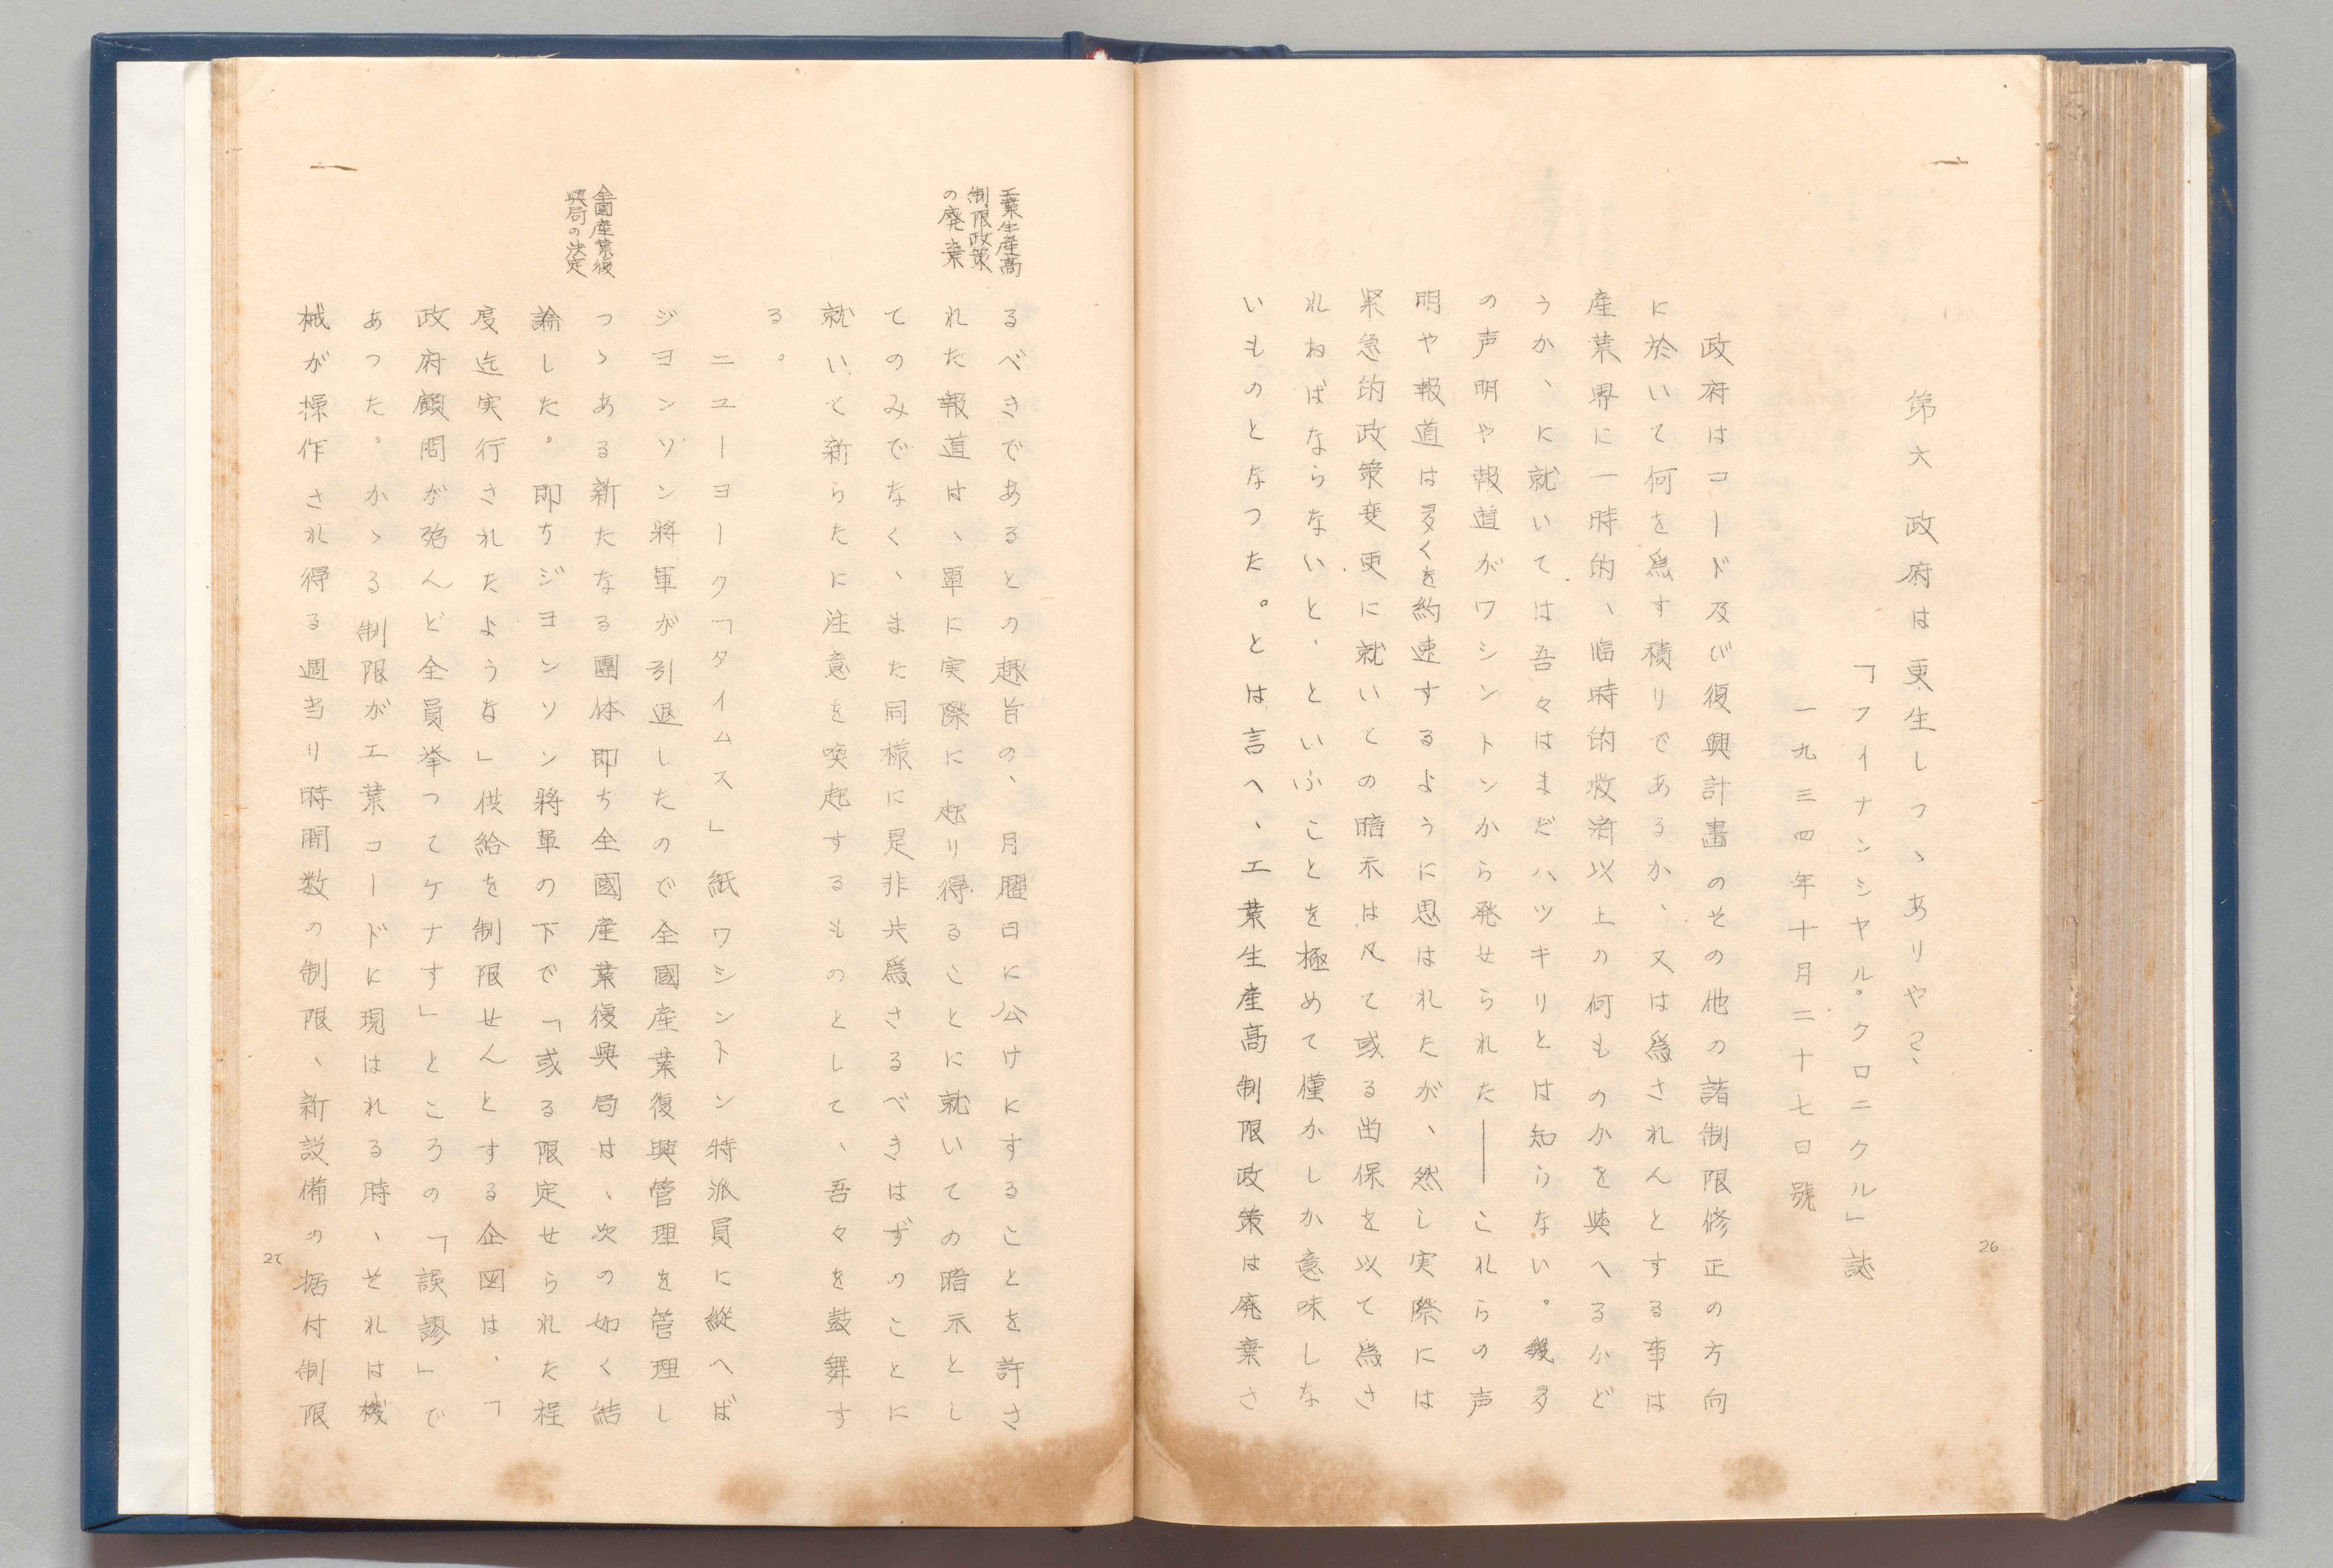 第六 政府は更生しつゝありや？、
「フイナンシヤル。クロニクル」誌
一九三四年十月二十七日號
政府はコード及び復興計畵のその他の諸制限修正の方向
に於いて何を爲す積りであるか、又は爲されんとする事は
産業界に一時的、臨時的救済以上の何ものかを與へるかど
うか、に就いては吾々はまだハツキリとは知らない。幾多
の声明や報道がワシントンから発せられた――これらの声
明や報道は多くを約速するように思はれたが、然し実際には
緊急的政策変更に就いての暗示は凡て或る畄保を以て爲さ
れねばならないと、といふことを極めて僅かしか意味しな
いものとなつた。とは言へ、工業生産高制限政策は廃棄さ
26
工業生産高
制限政策
の廃棄
るべきであるとの趣旨の、月曜日に公けにすることを許さ
れた報道は、單に実際に起り得ることに就いての暗示とし
てのみでなく、また同様に是非共爲さるべきはずのことに
就いて新らたに注意を喚起するものとして、吾々を鼓舞す
る。
ニユーヨーク「タイムス」紙ワシントン特派員に縦へば
ジヨンソン將軍が引退したので全國産業復興管理を管理し
全國産業復
興局の決定
つゝある新たなる團体即ち全國産業復興局は、次の如く結
論した。即ちジヨンソン將軍の下で「或る限定せられた程
度迄実行されたような」供給を制限せんとする企図は、「
政府顧問が殆んど全員挙つてケナす」ところの「誤謬」で
あつた。かゝる制限が工業コードに現はれる時、それは機
械が操作され得る週当り時間数の制限、新設備の据付制限
27